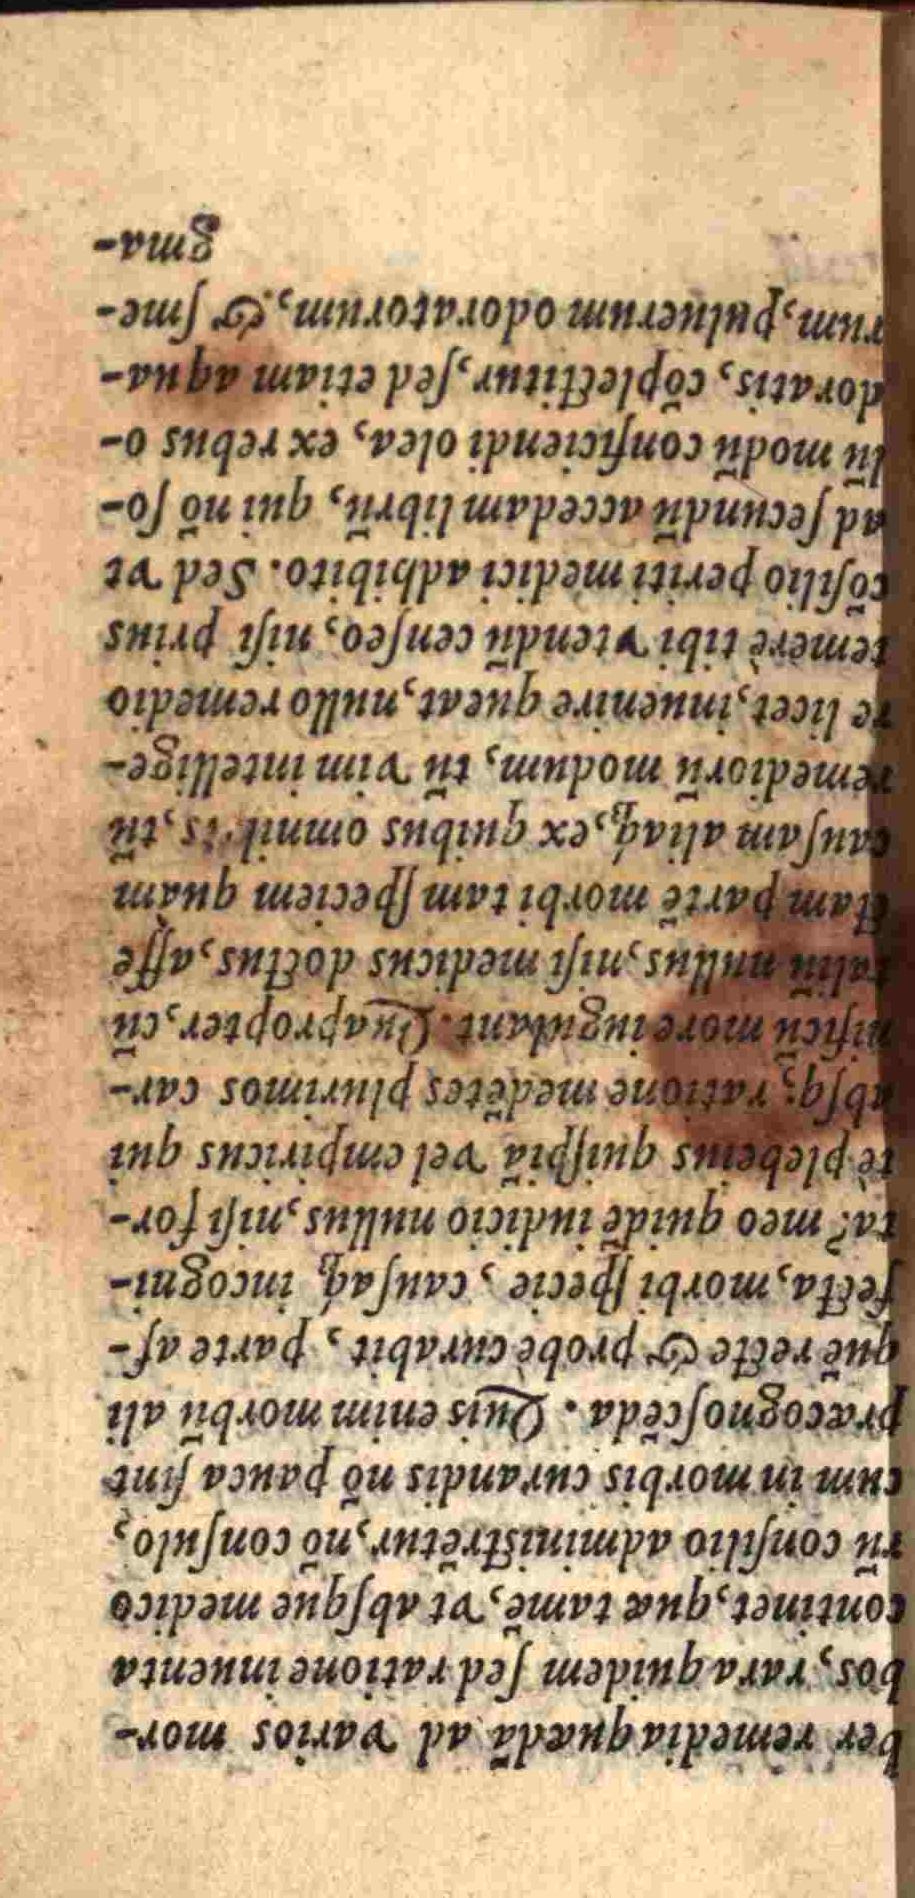 ber remedia quædã ad varios mor-
bos, rara quidem sed ratione inuenta
continet, quæ tamẽ, vt absque medico
rũ consilio administrẽtur, nõ consulo,
cum in morbis curandis nõ pauca sint
præcognoscẽda. Quis enim morbũ ali
quẽ recte & probè curabit, parte af-
fecta, morbi specie, causaq́ incogni-
ta? meo quidẽ iudicio nullus, nisi for-
tè plebeius quispiã vel empiricus qui
absq; ratione medẽtes plurimos car-
nificũ more iugulant. Quapropter, cũ
taliũ nullus, nisi medicus doctus, affe
ctam partẽ morbi tam speciem quàm
causam aliaq́, ex quibus omnibus, tũ
remediorũ modum, tũ vim intellige-
re licet, inuenire queat, nullo remedio
temerè tibi vtendũ censeo, nisi prius
cõsilio periti medici adhibito. Sed vt
ad secundũ accedam librũ, qui nõ so-
lũ modũ conficiendi olea, ex rebus o-
doratis, cõplectitur, sed etiam aqua-
rum, puluerum odoratorum, & sme-
gma-